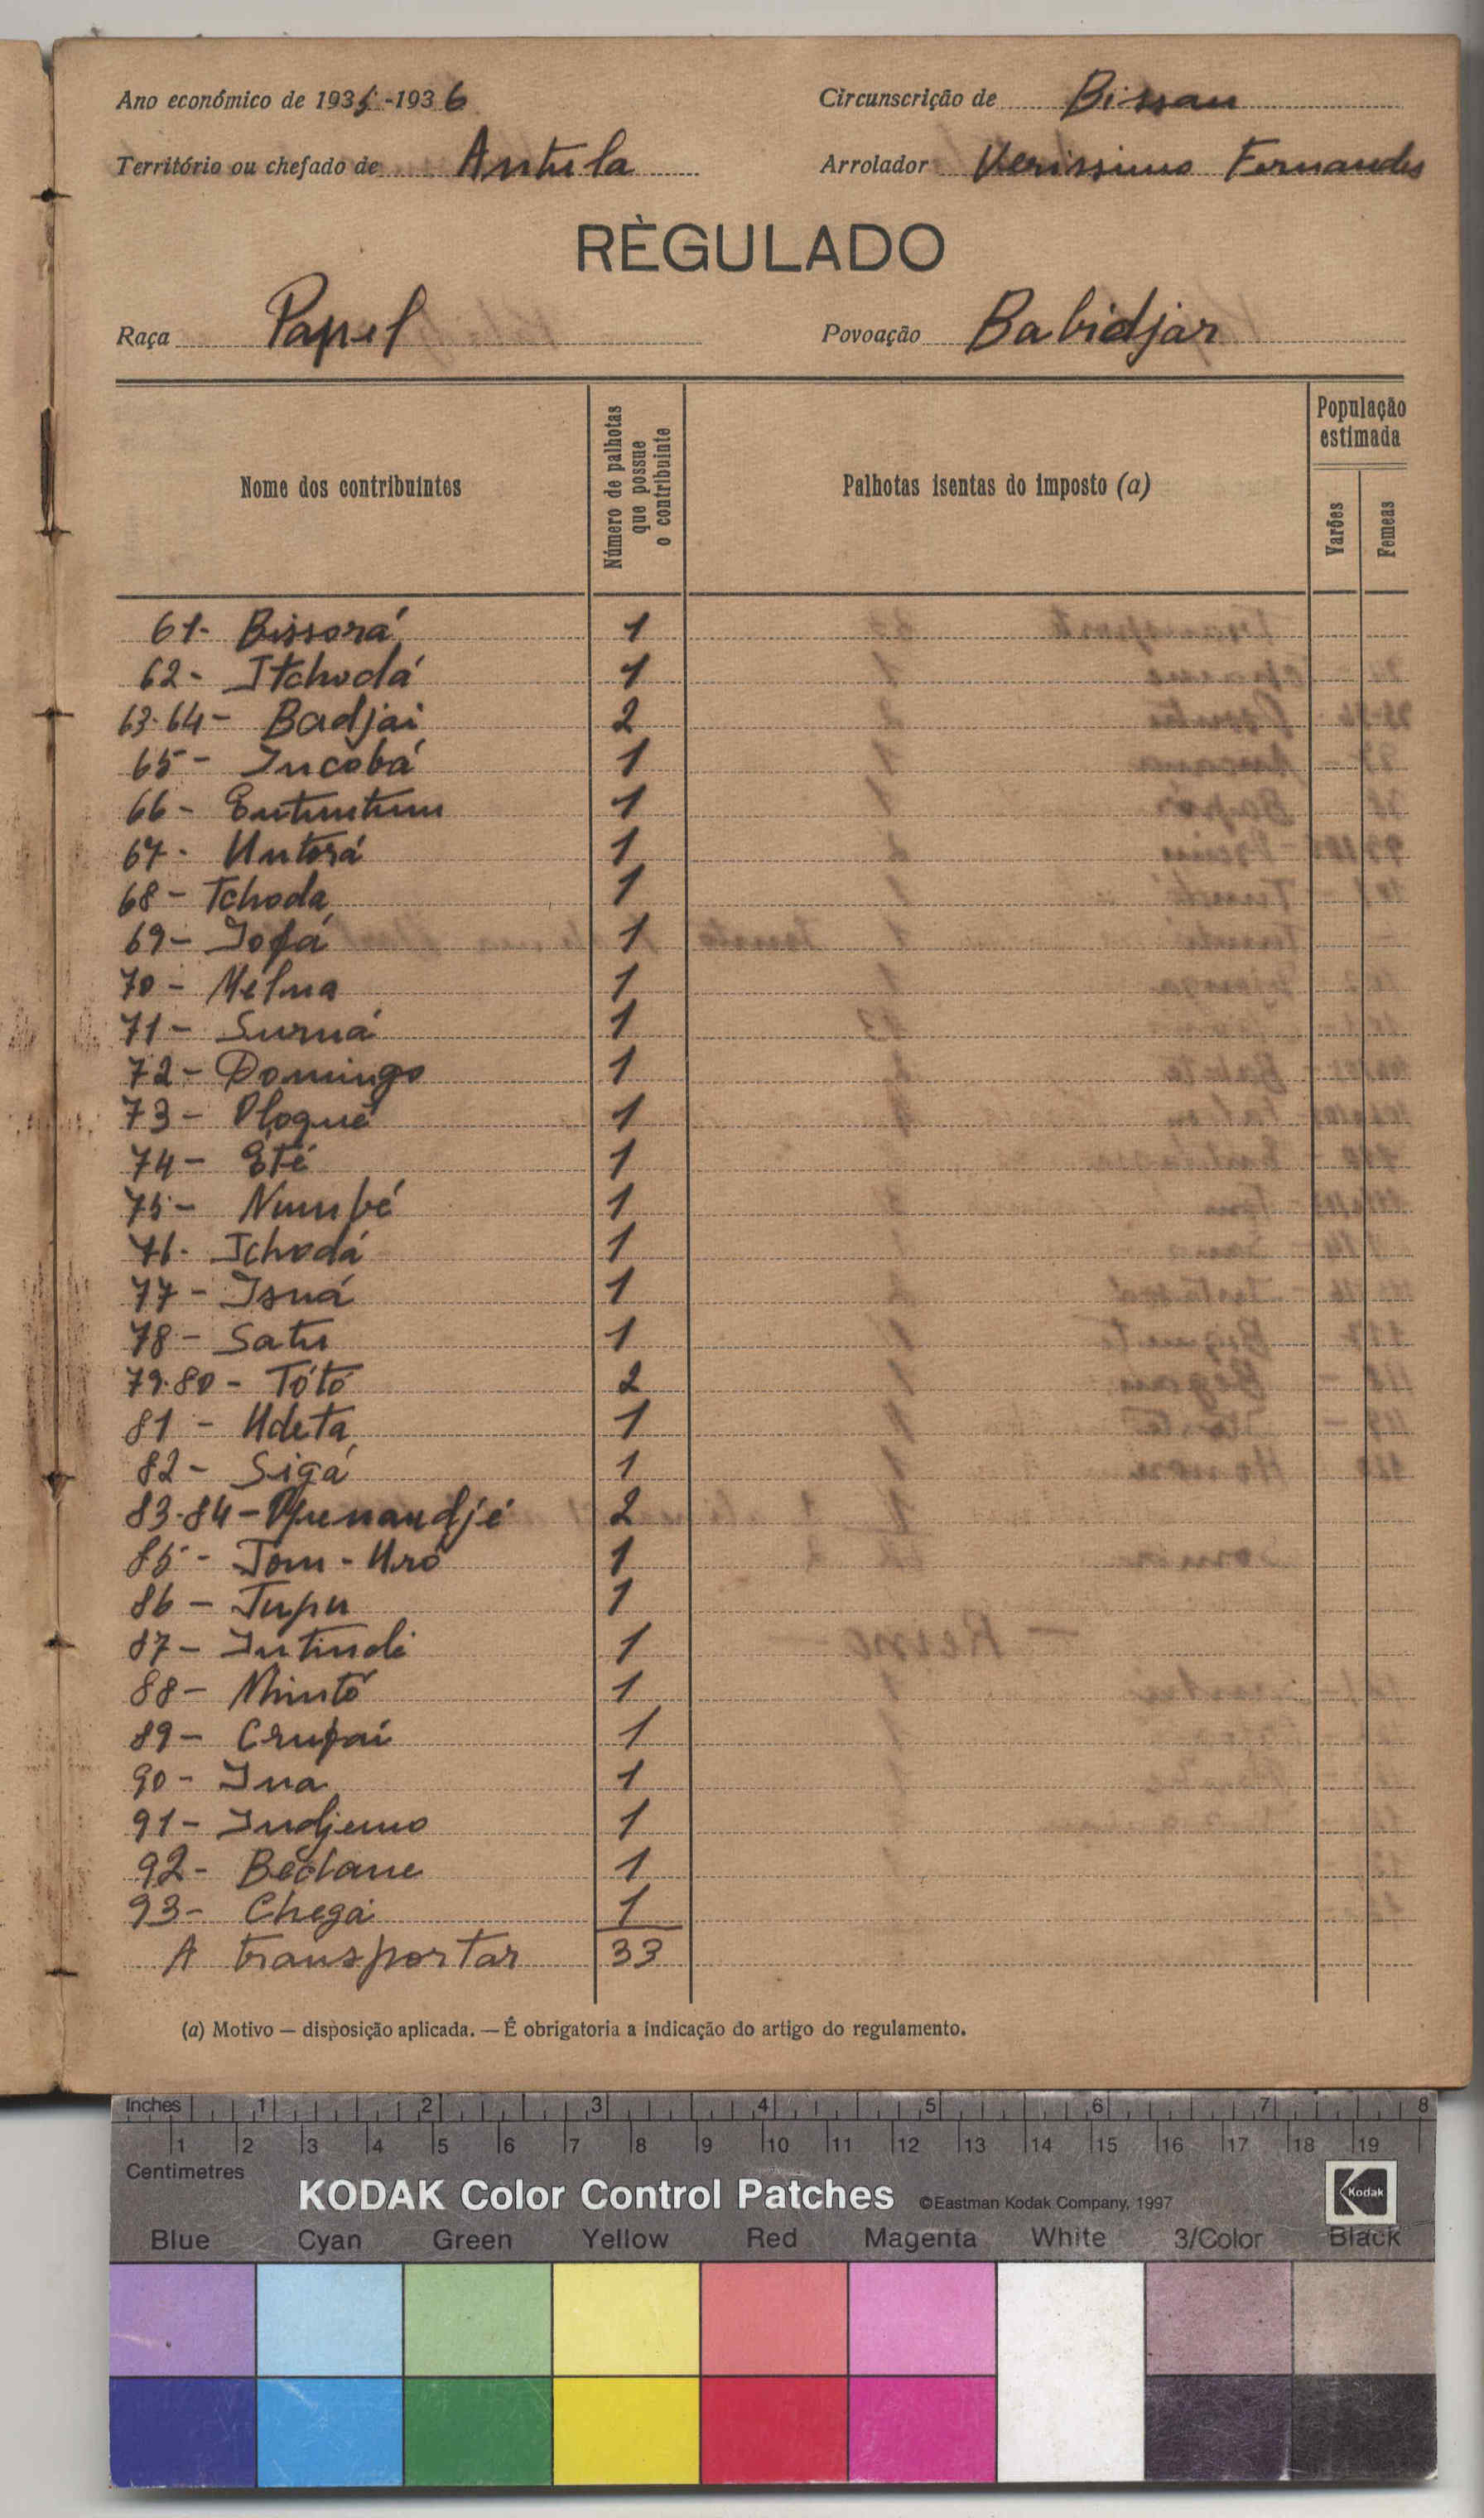 Ano económico de 1935-1936
Circunscrição de Bissau
Território ou chefado de Antula
Arrolador Verissimo Fernandes
RÈGULADO
Raça Papel
Povoação Babidjar
Nome dos contribuintes
Número de palhotas que possue o contribuinte
Palhotas isentas do imposto (a)
População estimada
Varões
Femeas
61- Bissorá 1
62- Itchodá 1
63-64- Badjai 2
65- Incobá 1
66- Entuntum 1
67- Untorá 1
68- Tchoda 1
69- Iofá 1
70- Melna 1
71- Surná 1
72- Domingo 1
73- Ploqué 1
74- Eté 1
75- Numbé 1
76- Ichodá 1
77- Isná 1
78- Satu 1
79-80- Tótó 2
81- Udeta 1
82- Sigá 1
83-84- 2
85- Tom-Uró 1
86- Tupu 1
87- Intindi 1
88- Mintó 1
89- Crupai 1
90- Ina 1
91- Indjemo 1
92- Béclane 1
93- Chega 1
A transportar 33
(a) Motivo — disposição aplicada. — É obrigatoria a indicação do artigo do regulamento.
Inches 1 2 3 4 5 6 7 8
1 2 3 4 5 6 7 8 9 10 11 12 13 14 15 16 17 18 19
Centimetres
KODAK Color Control Patches ©Eastman Kodak Company, 1997 Kodak
Blue Cyan Green Yellow Red Magenta White 3/Color Black